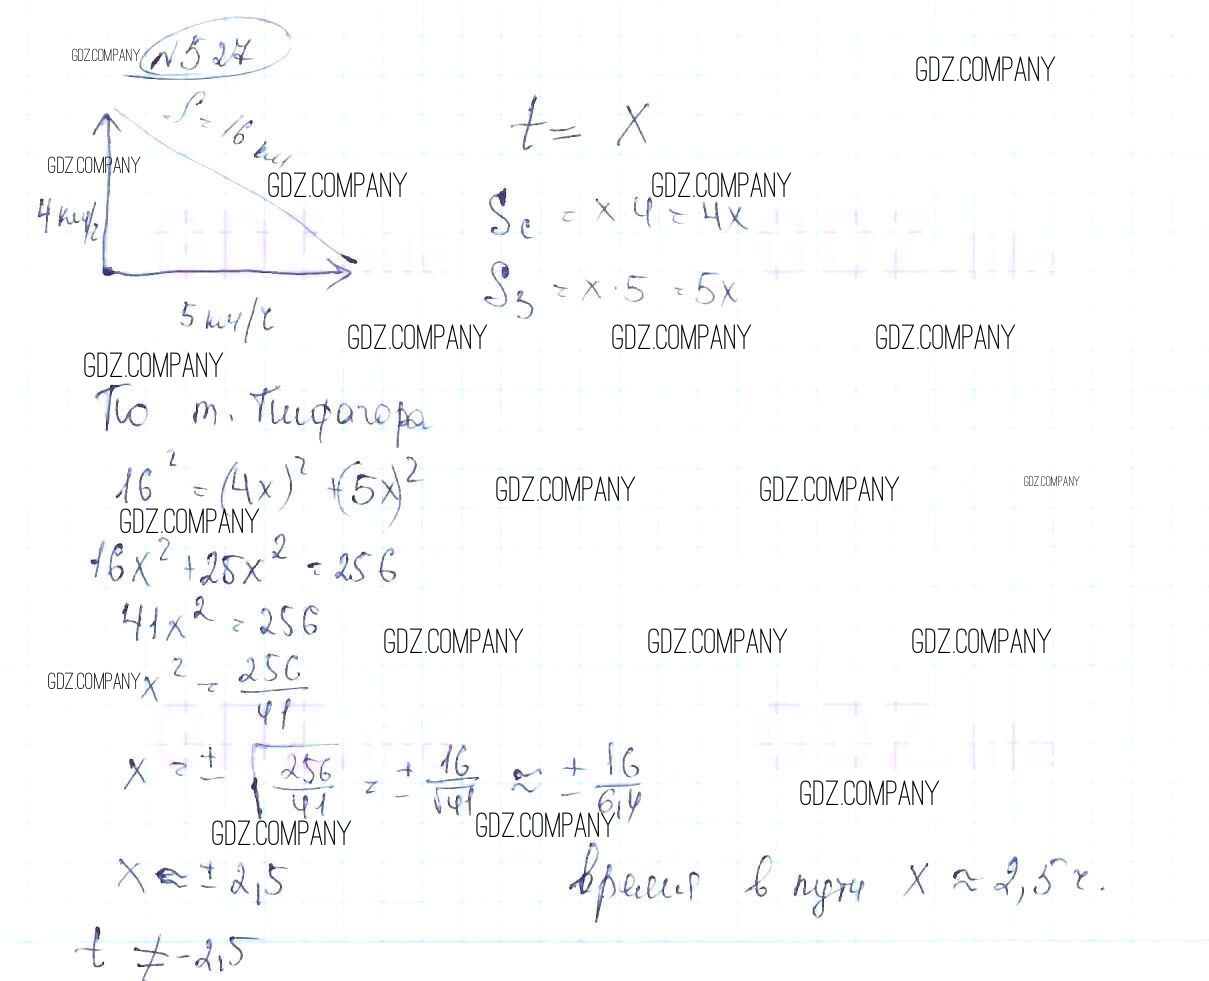 GDZ.COMPANY №527
GDZ.COMPANY
S = 16 км
t = x
GDZ.COMPANY
GDZ.COMPANY GDZ.COMPANY
4 км/ч
Sс = x · 4 = 4x
Sз = x · 5 = 5x
5 км/ч
GDZ.COMPANY GDZ.COMPANY GDZ.COMPANY
GDZ.COMPANY
По т. Пифагора
16² = (4x)² + (5x)²
GDZ.COMPANY GDZ.COMPANY GDZ.COMPANY
GDZ.COMPANY
16x² + 25x² = 256
41x² = 256
GDZ.COMPANY GDZ.COMPANY GDZ.COMPANY
GDZ.COMPANY x² = 256/41
x = ± √(256/41) = ± 16/√41 ≈ ± 16/6,4
GDZ.COMPANY
GDZ.COMPANY GDZ.COMPANY
x ≈ ± 2,5 время в пути x ≈ 2,5 ч.
t ≠ -2,5